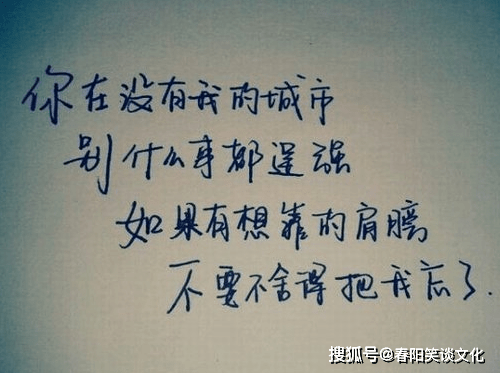 你在没有我的城市
别什么事都逞强
如果有想靠的肩膀
不要不舍得把我忘了.
搜狐号@春阳笑谈文化